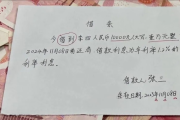 借 条
今借到李四人民币10000元整，壹万元整
2024年11月08日前还清 借款利息以年利率12%的
年利率利息。
借款人：张三
2023年11月08日